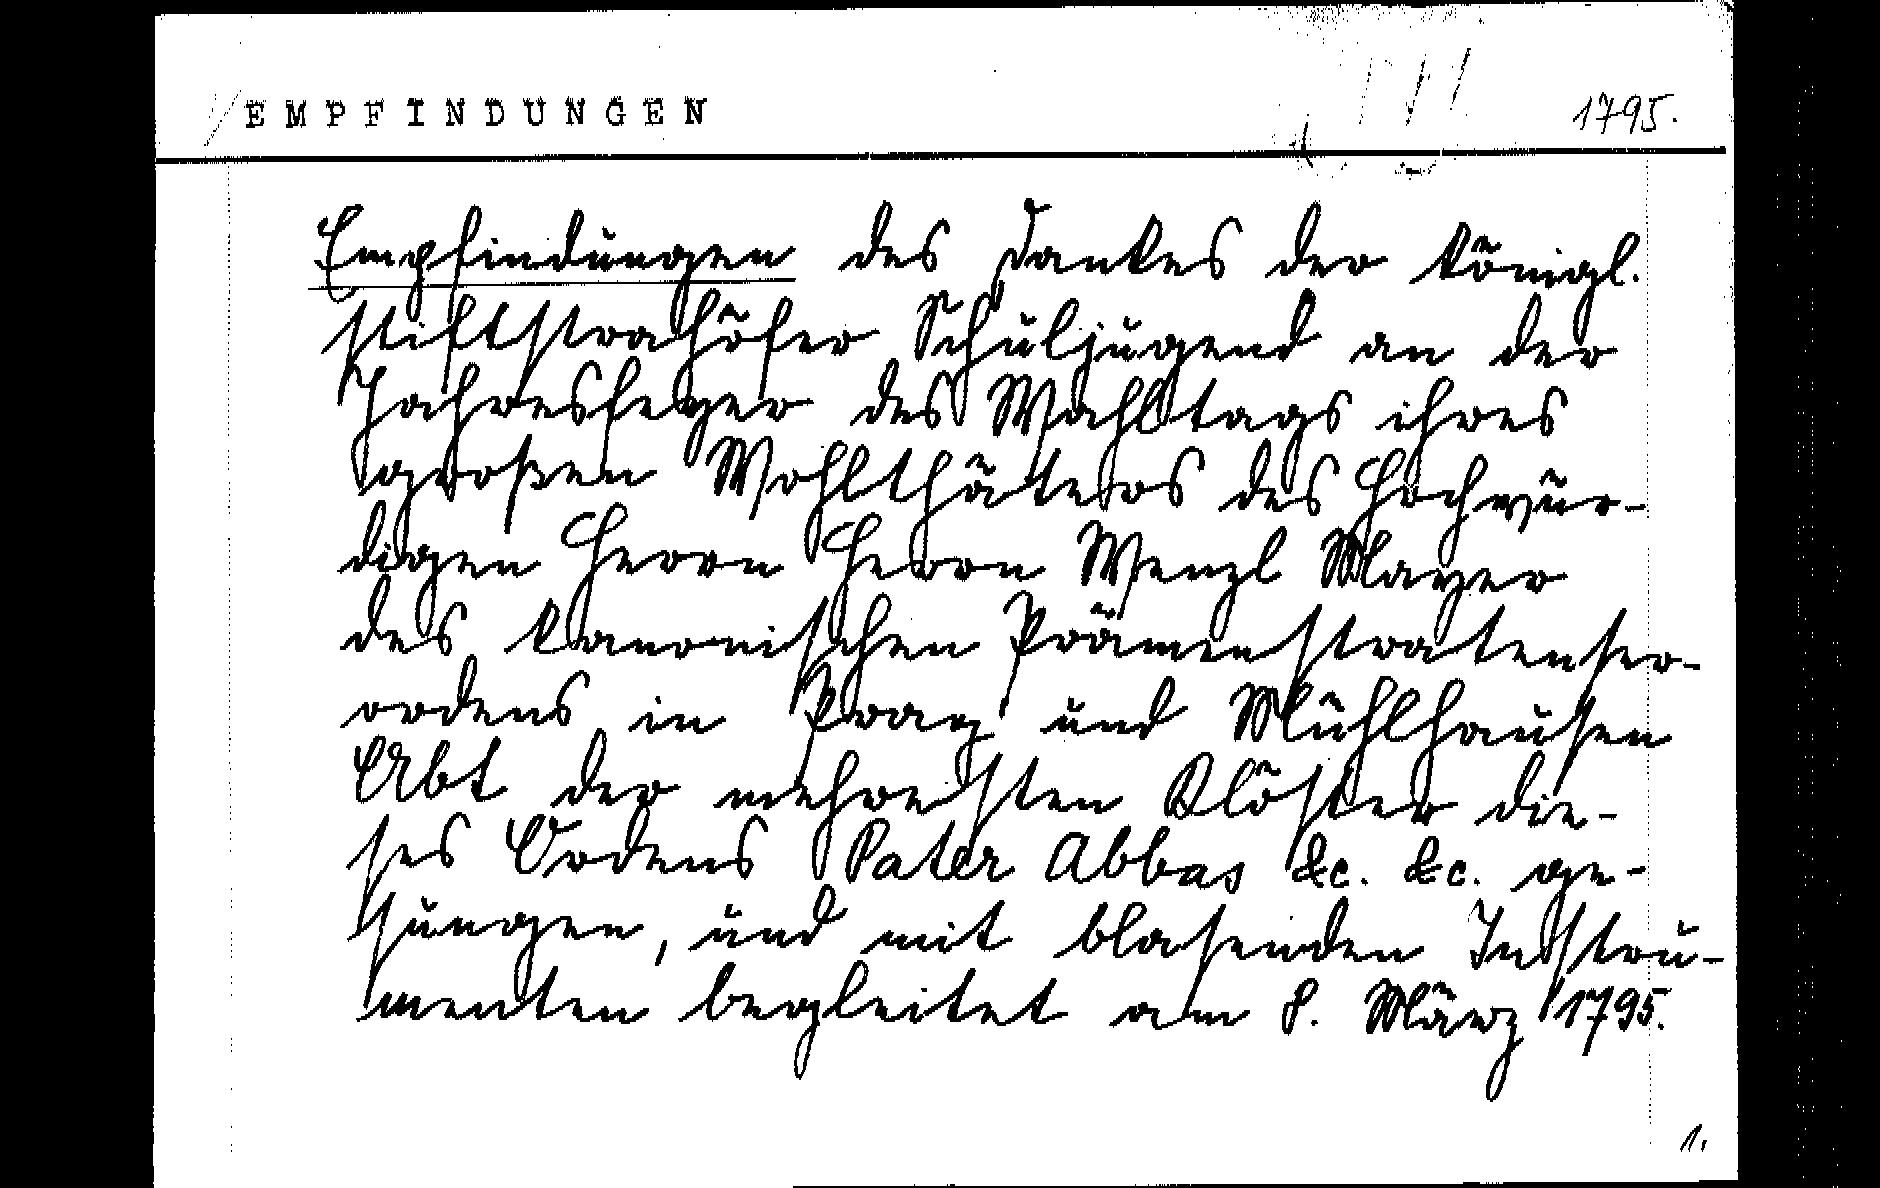 EMPFINDUNGEN 1795.
Empfindungen des Dankes der königl.
stiftstrahöfer Schuljugend an der
Jahresfeyer des Wahltags ihres
großen Wohlthäters des Hochwür-
digen Herrn Herrn Wenzl Mayer
des kanonischen Prämenstratenser-
ordens in Prag und Mühlhausen
Abt der mehresten Klöster die-
ses Ordens Pater Abbas &c. &c. ge-
sungen, und mit blasenden Instru-
menten begleitet am 8. März 1795.
1.